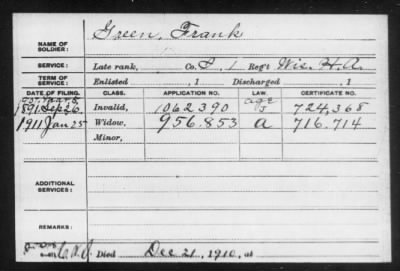 Green, Frank
NAME OF SOLDIER:
SERVICE: Late rank, Co. I, 1 Reg't Wis. H.A.
TERM OF SERVICE: Enlisted , 1 Discharged , 1
DATE OF FILING. CLASS. APPLICATION NO. LAW. CERTIFICATE NO.
1891 Sep 26 Invalid, 1062390 age 724,368
1911 Jan 25 Widow, 956.853 a 716.714
Minor,
ADDITIONAL SERVICES:
REMARKS:
Died Dec 21, 1910, at